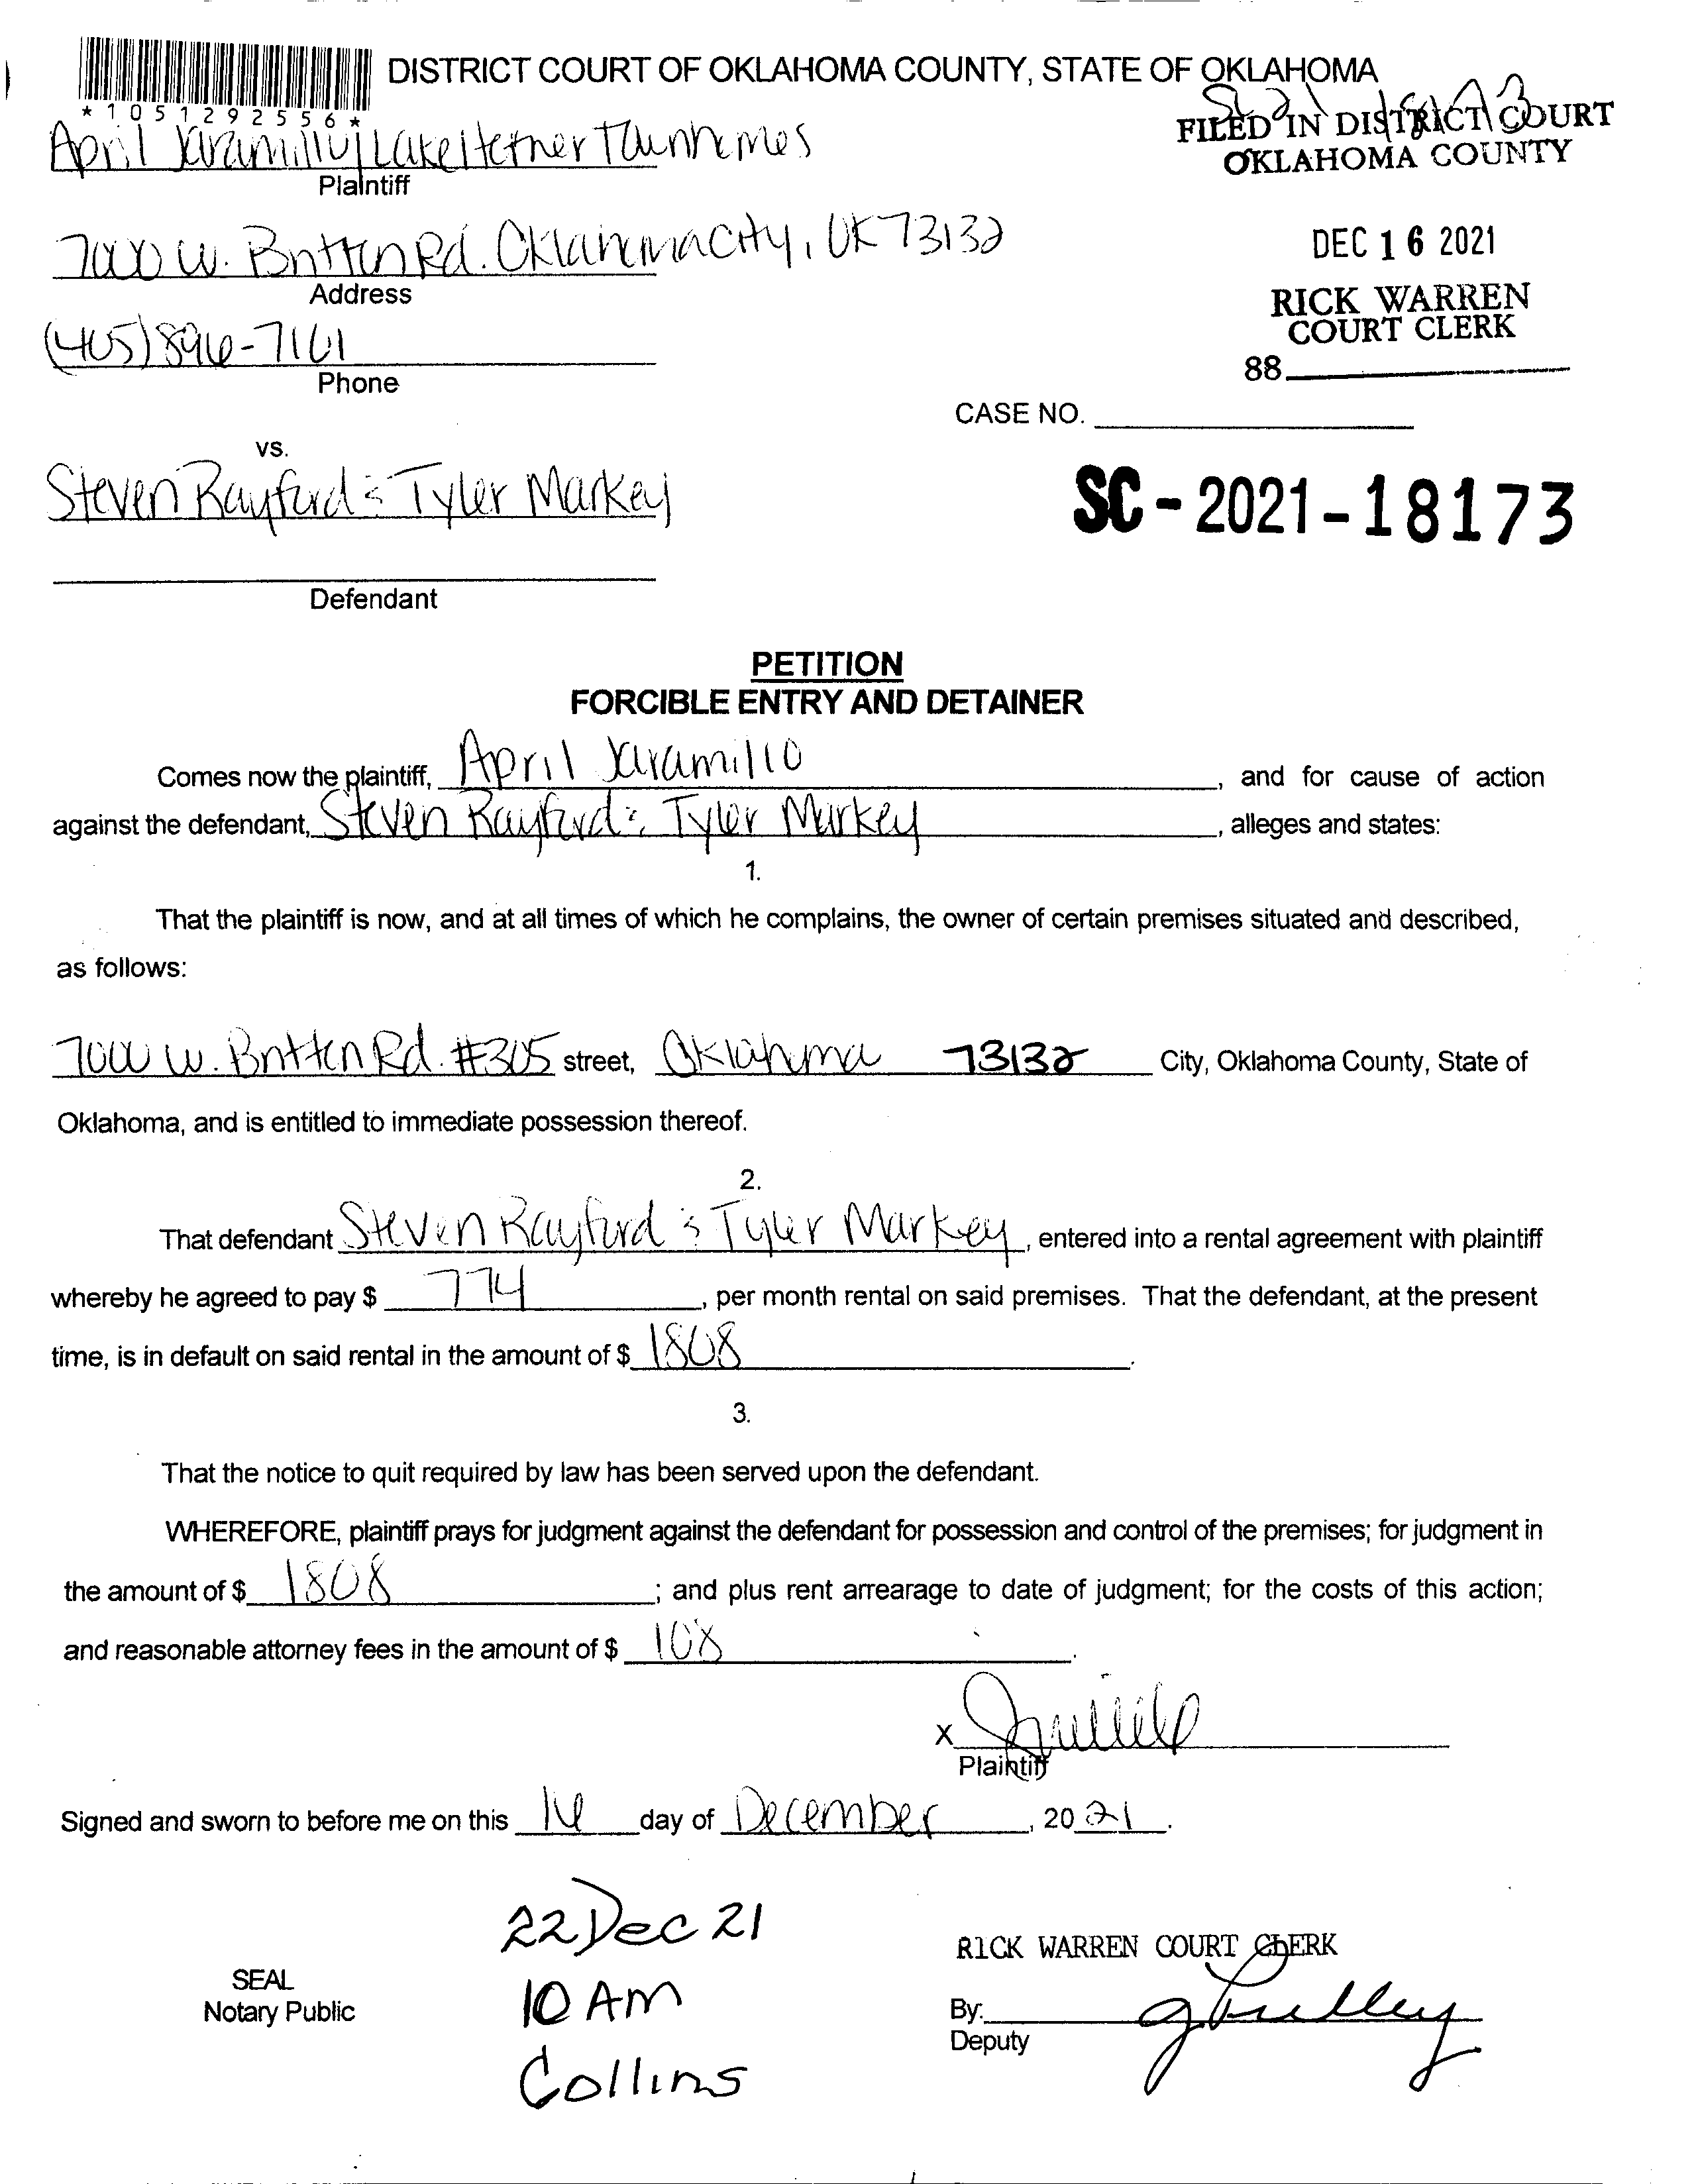 DISTRICT COURT OF OKLAHOMA COUNTY, STATE OF OKLAHOMA
*1051292556*
FILED IN DISTRICT COURT
OKLAHOMA COUNTY
April Jaramillo | Lake Hefner Townhomes
Plaintiff
7000 W. Britton Rd. Oklahoma City, OK 73132
Address
DEC 16 2021
RICK WARREN
COURT CLERK
(405) 896-7161
Phone
88
CASE NO.
vs.
Steven Rayford & Tyler Markey
SC-2021-18173
Defendant
PETITION
FORCIBLE ENTRY AND DETAINER
Comes now the plaintiff, April Jaramillo, and for cause of action
against the defendant, Steven Rayford & Tyler Markey, alleges and states:
1.
That the plaintiff is now, and at all times of which he complains, the owner of certain premises situated and described,
as follows:
7000 W. Britton Rd. #305 street, Oklahoma 73132 City, Oklahoma County, State of
Oklahoma, and is entitled to immediate possession thereof.
2.
That defendant Steven Rayford & Tyler Markey, entered into a rental agreement with plaintiff
whereby he agreed to pay $ 774, per month rental on said premises. That the defendant, at the present
time, is in default on said rental in the amount of $ 1808.
3.
That the notice to quit required by law has been served upon the defendant.
WHEREFORE, plaintiff prays for judgment against the defendant for possession and control of the premises; for judgment in
the amount of $ 1808; and plus rent arrearage to date of judgment; for the costs of this action;
and reasonable attorney fees in the amount of $ 108.
X
Plaintiff
Signed and sworn to before me on this 16 day of December, 2021.
22 Dec 21
10 AM
Collins
SEAL
Notary Public
RICK WARREN COURT CLERK
By:
Deputy